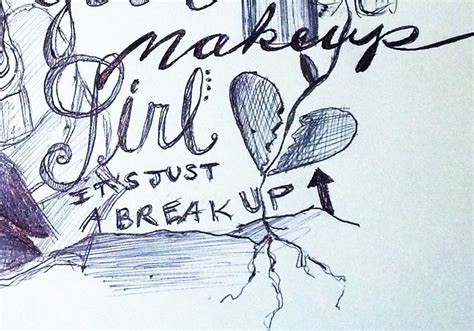 makeup
Girl
IT'S JUST
A BREAK UP